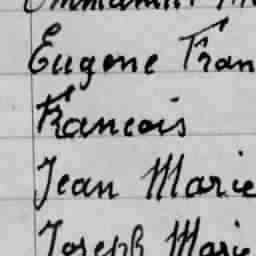 Eugene Fran
Francois
Jean Marie
Joseph Marie